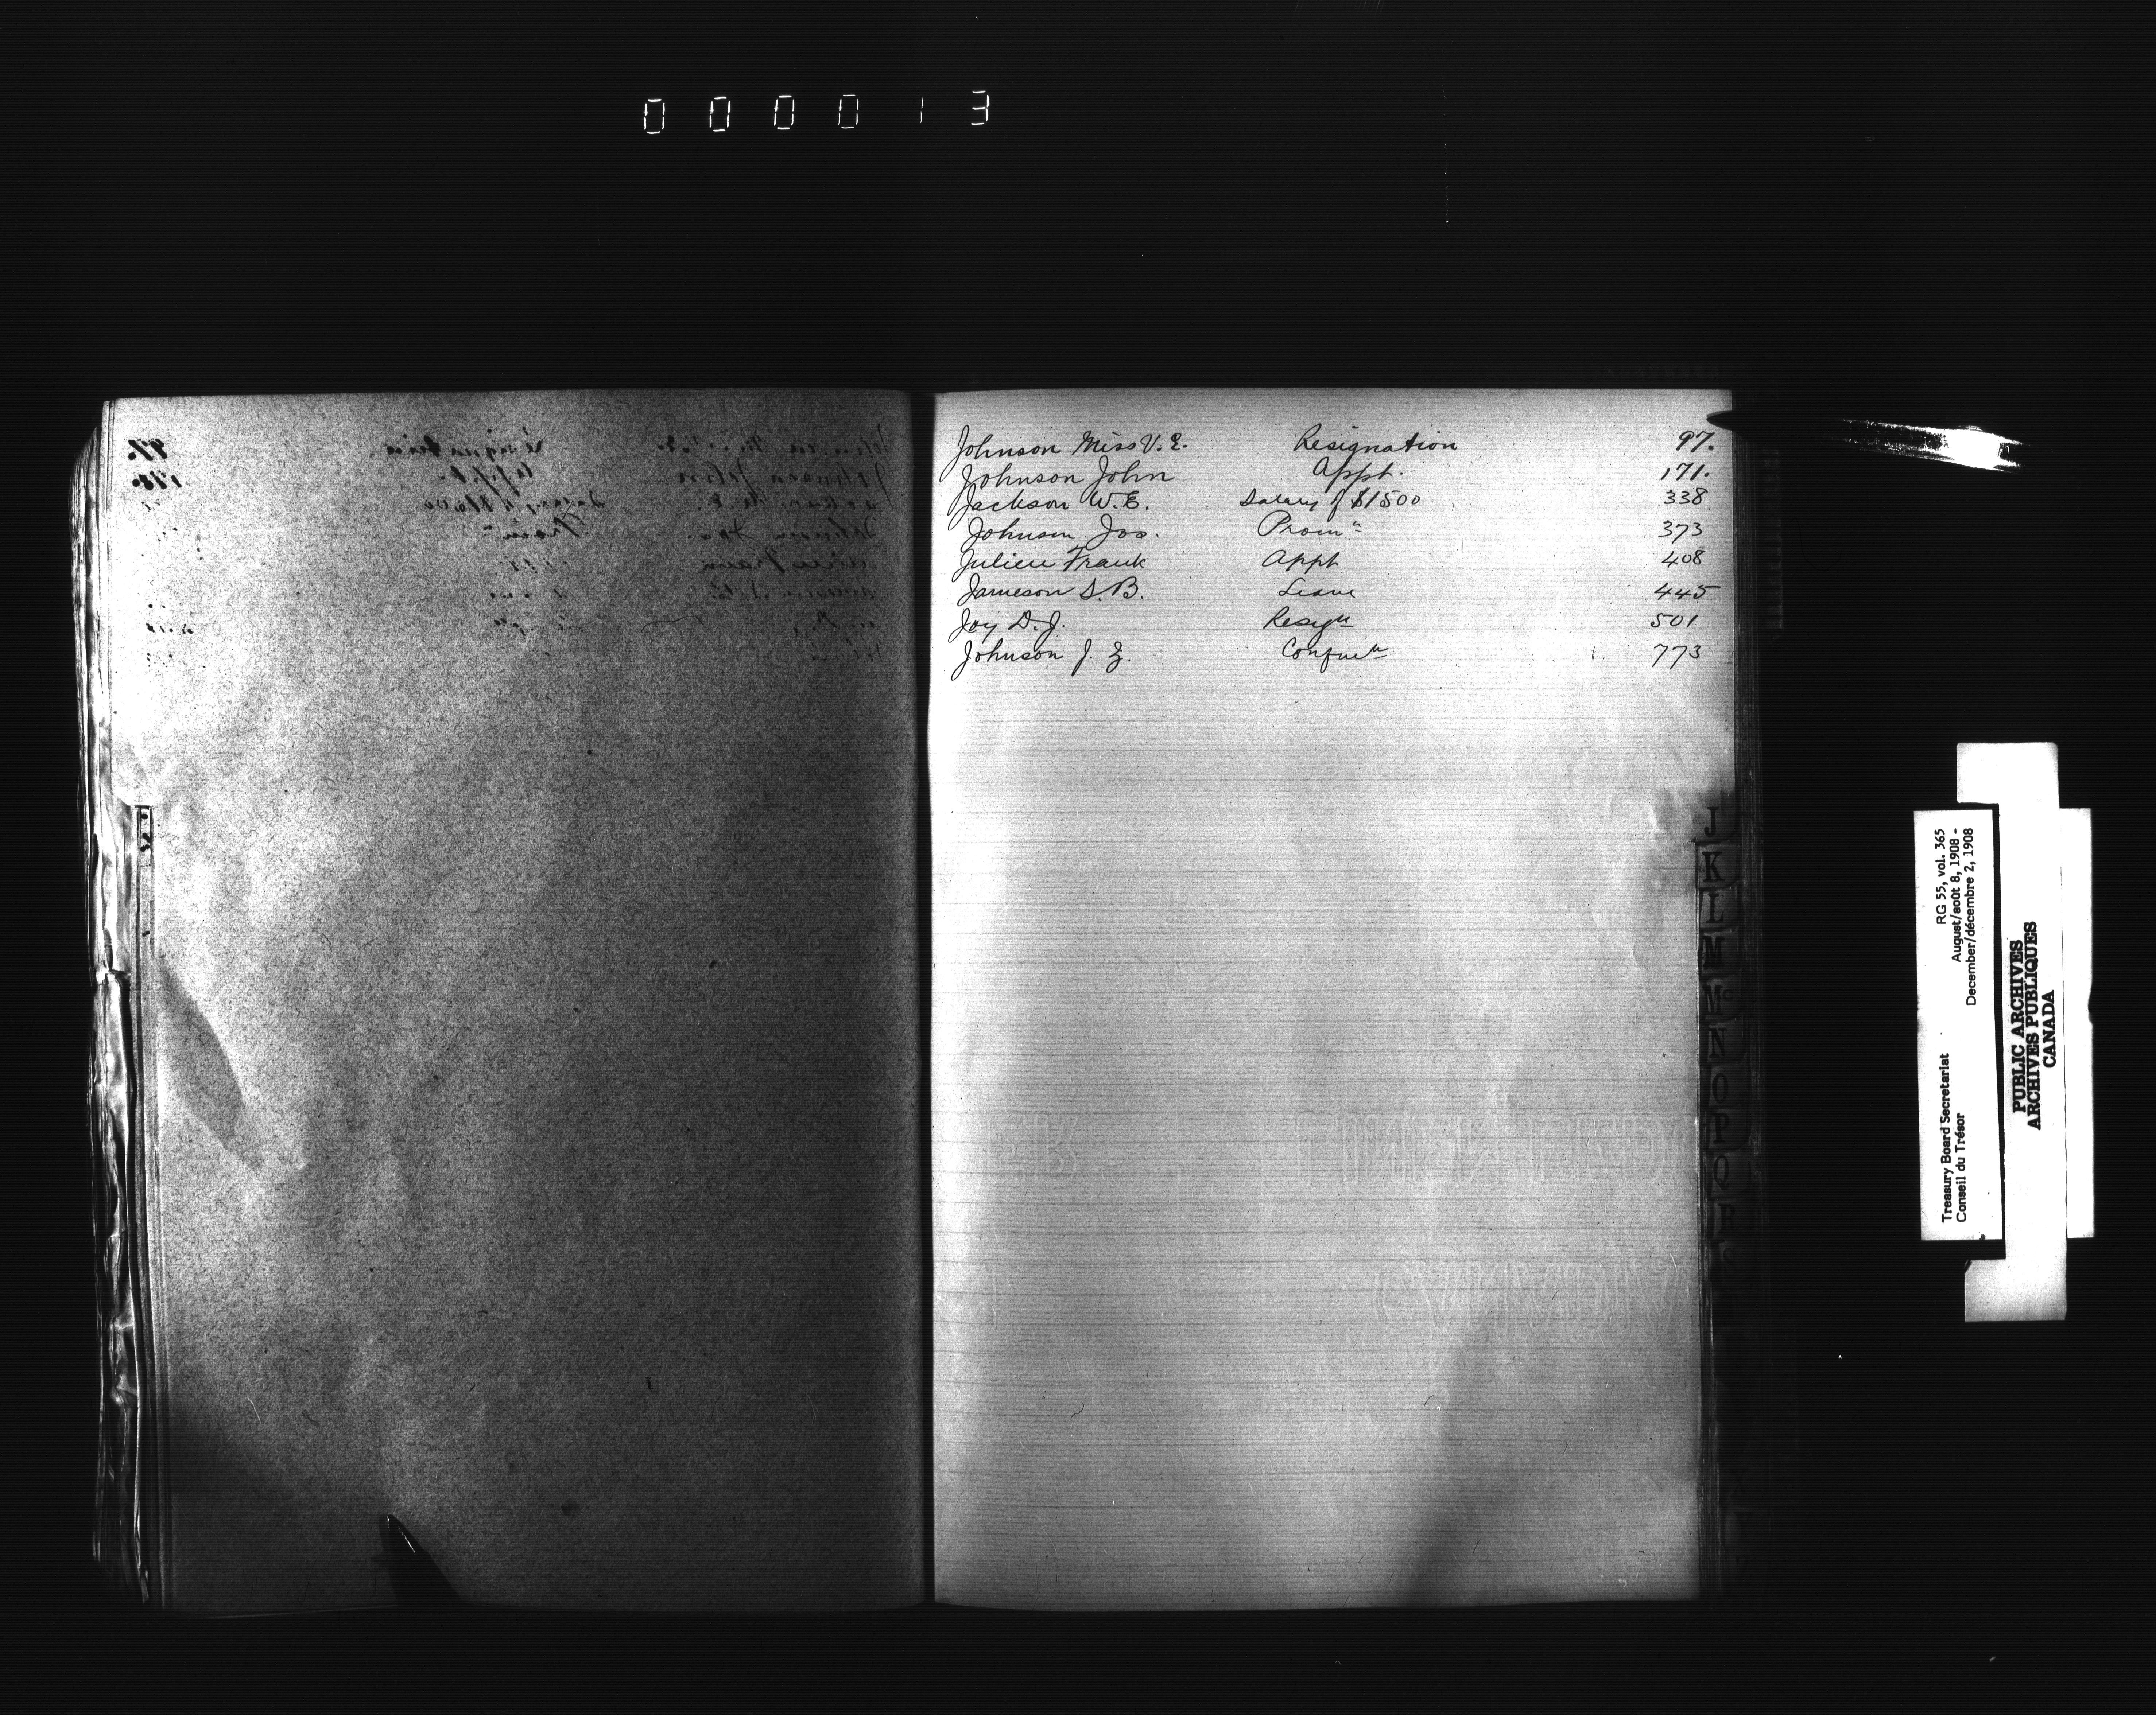 000013
Johnson Miss V. E. Resignation 97.
Johnson John Appt. 171.
Jackson W. E. Salary of $1500 338
Johnson Jos. Promn 373
Julien Frank Appt 408
Jameson S. B. Leave 445
Joy D. J. Resign 501
Johnson J. Z. 773
J
K
L
M
Mc
N
O
P
Q
R
S
RG 55, vol. 365
August/août 8, 1908 -
December/décembre 2, 1908
Treasury Board Secretariat
Conseil du Trésor
PUBLIC ARCHIVES
ARCHIVES PUBLIQUES
CANADA